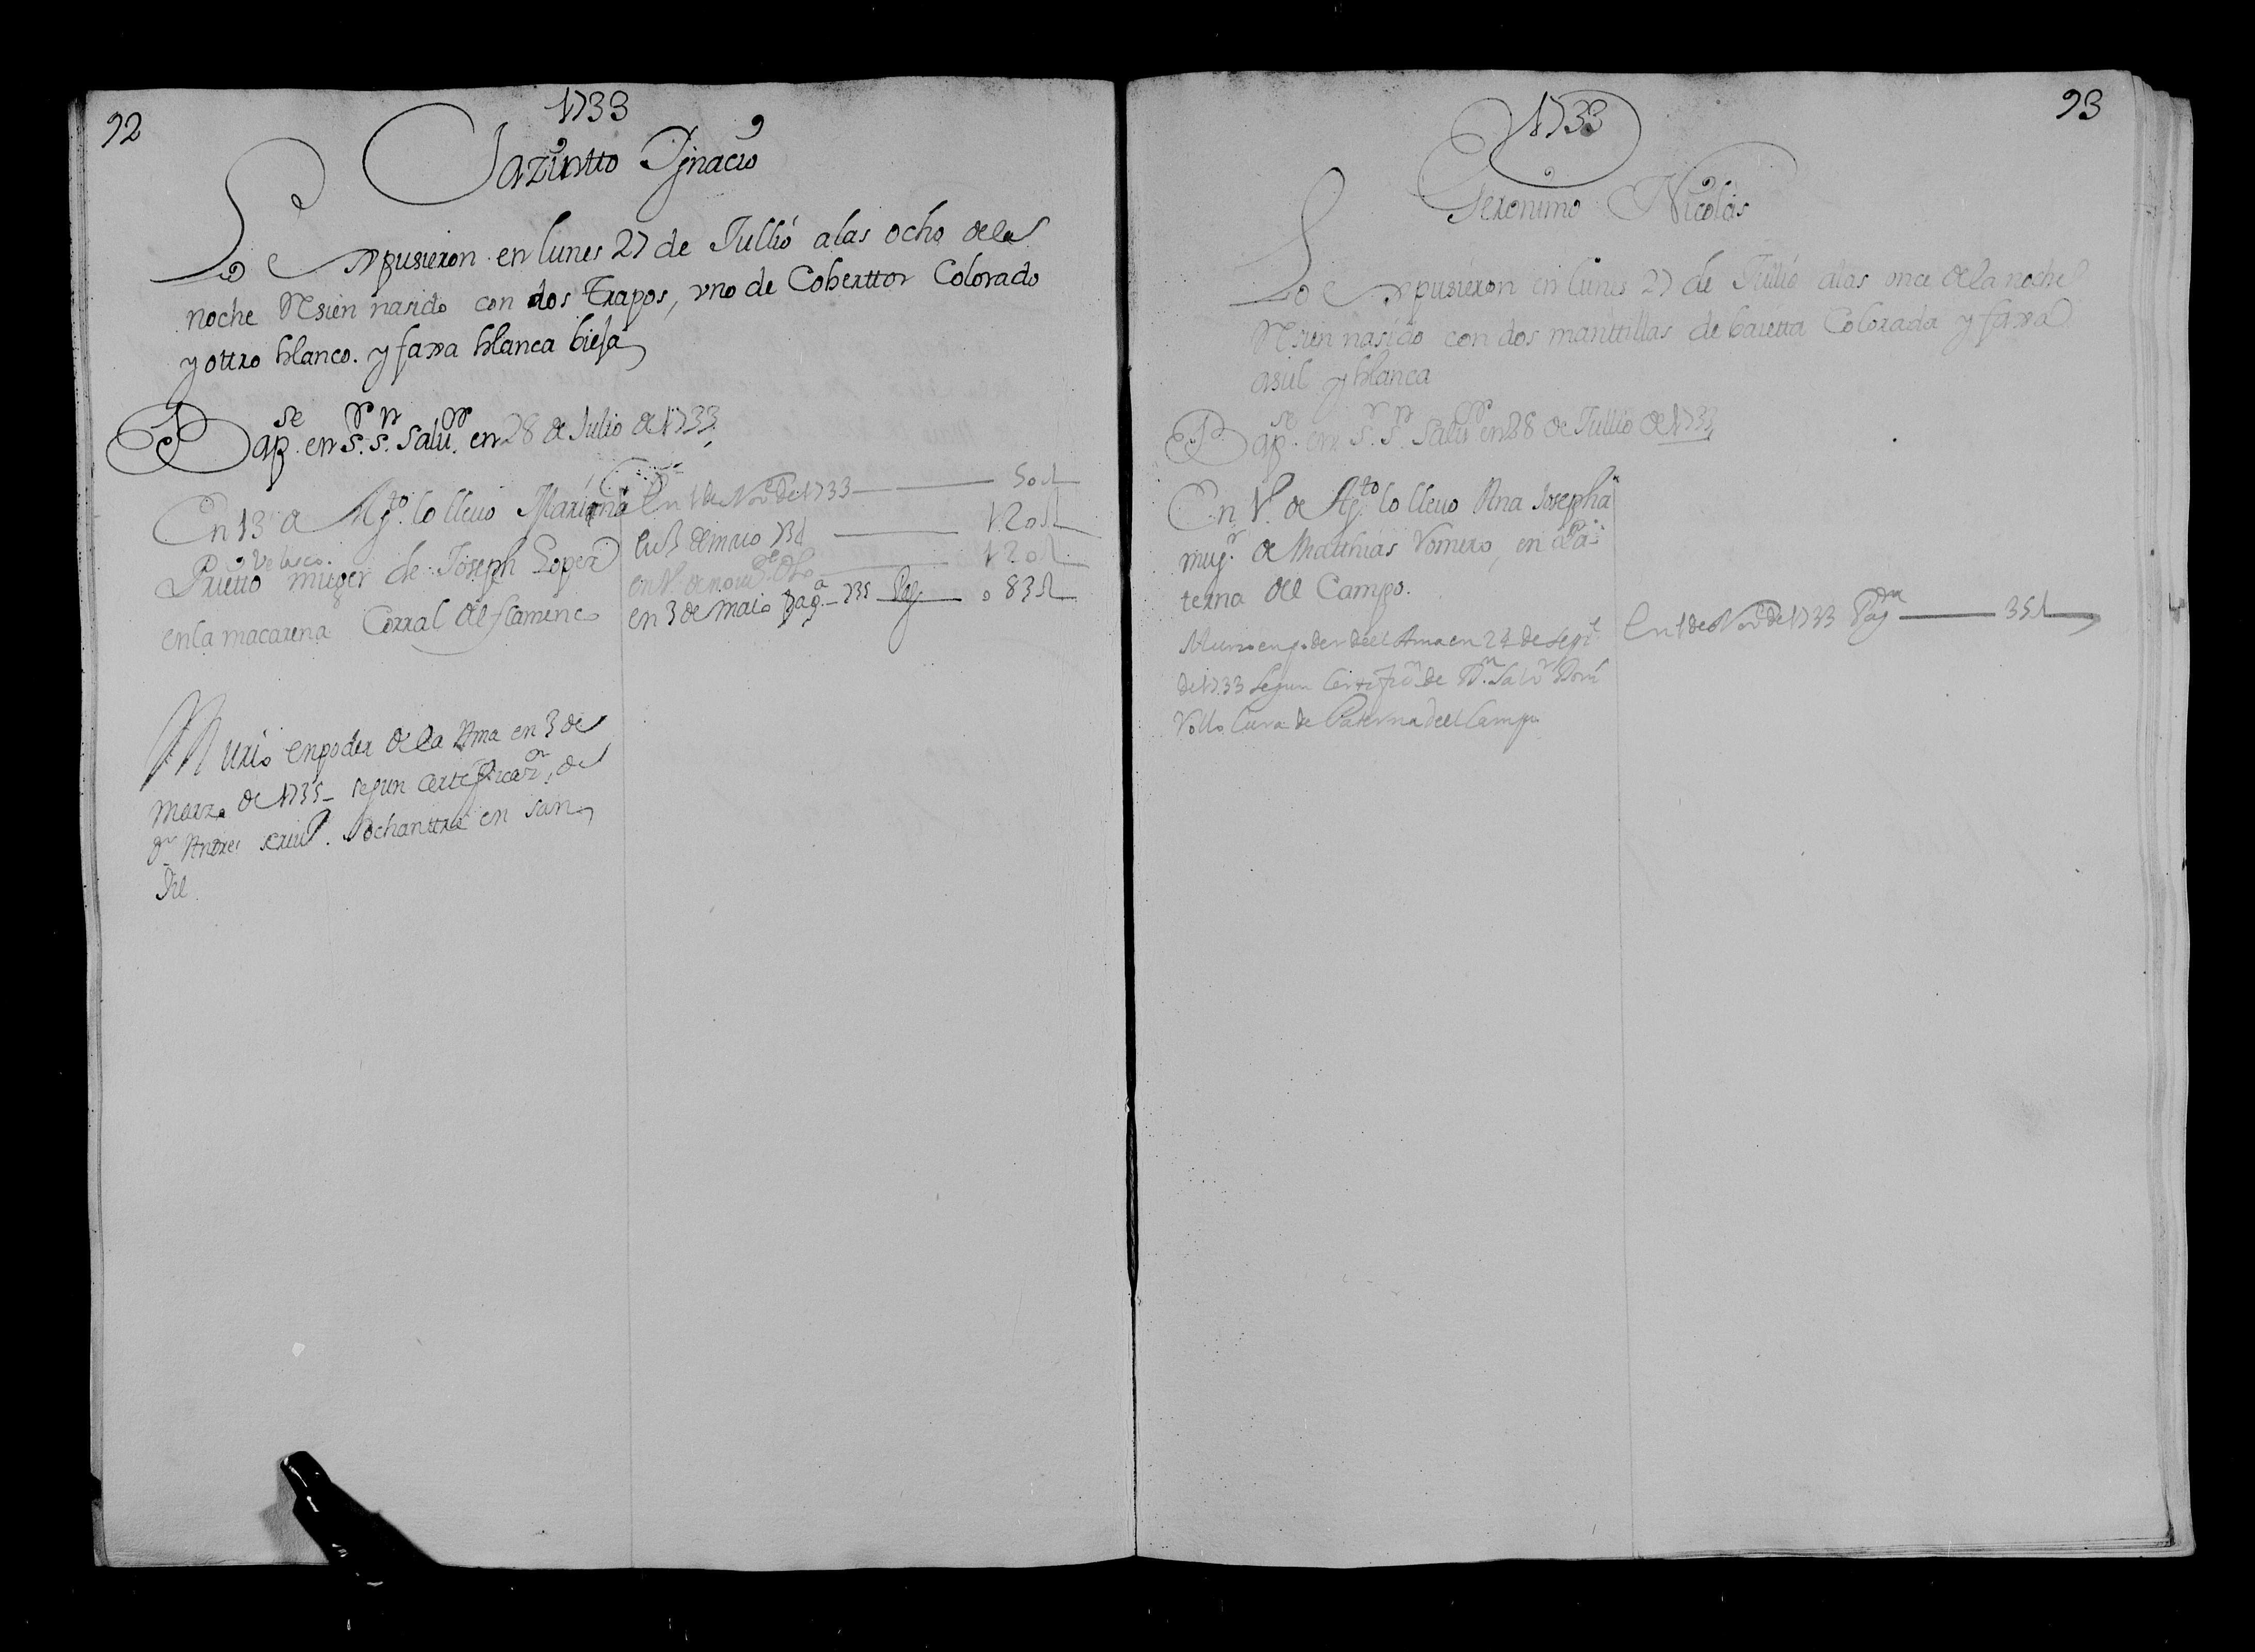 92
1733
Jazintto Ygnacio
Lo expusieron en lunes 27 de Jullió alas ocho de la
noche Resien nasido con dos trapos, vno de Coberttor Colorado
y ottro blanco. y faxa blanca bieja
Bapse. en Sr. Sn. Salur. en 28 de Julio de 1733
En 13 de Agto. lo lleuo Mariana
Velasco.
Prietto muger de Joseph Lopez
en la macarena Corral del flamenco
En 1 de Noe de 1733 50 r
en 3 de maio 734 120 r
en 1º. de noue 120 r
en 3 de maio paga 735 Pag 083 r
Murio en poder de la Ama en 3 de
Marzo de 1735 segun Certificazn. de
Dn Andres Sochanttre en San
Jil
1733
93
Geronimo Nicolas
Lo expusieron en lunes 27 de Jullió alas once de la noche
Resien nasido con dos manttillas de baietta Colorada y faxa
asul y blanca
Bapse. en Sr. Sn. Salur en 28 de Jullio de 1733
En 1º. de Agto. lo lleuo Ana Josepha
mugr. de Matthias Romero, en Pa
terna del Campo.
Murio en poder del Ama en 24 de Sepe
de 1733 segun Certifion de Dn. Salur
Cura de Paterna del Campo
En 1 de Noe de 1733 Pag 35 r